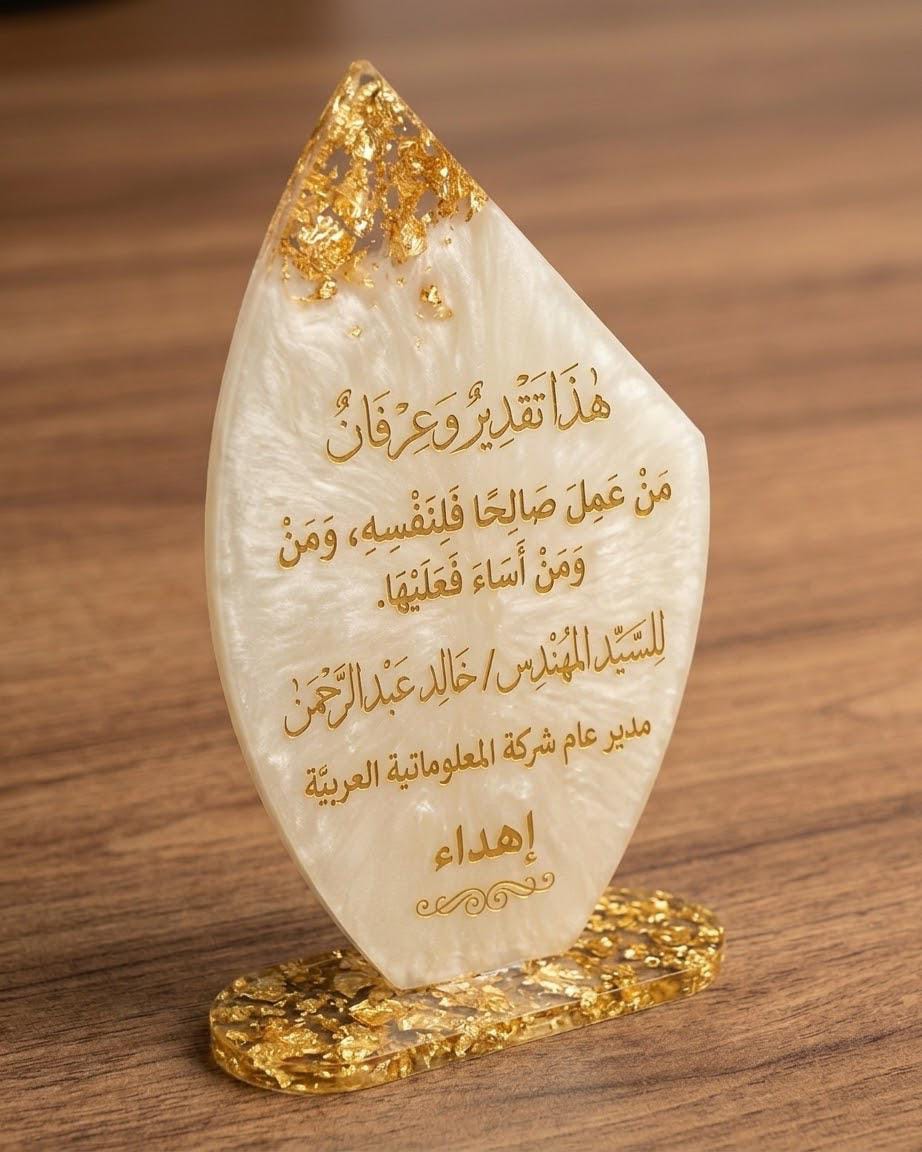 هٰذَا تَقْدِيرٌ وَعِرْفَانٌ
مَنْ عَمِلَ صَالِحًا فَلِنَفْسِهِ، وَمَنْ
وَمَنْ أَسَاءَ فَعَلَيْهَا.
لِلسَّيِّد المُهَنْدِس / خَالِد عَبْدالرَّحْمَنْ
مدير عام شركة المعلوماتية العربيَّة
إهداء